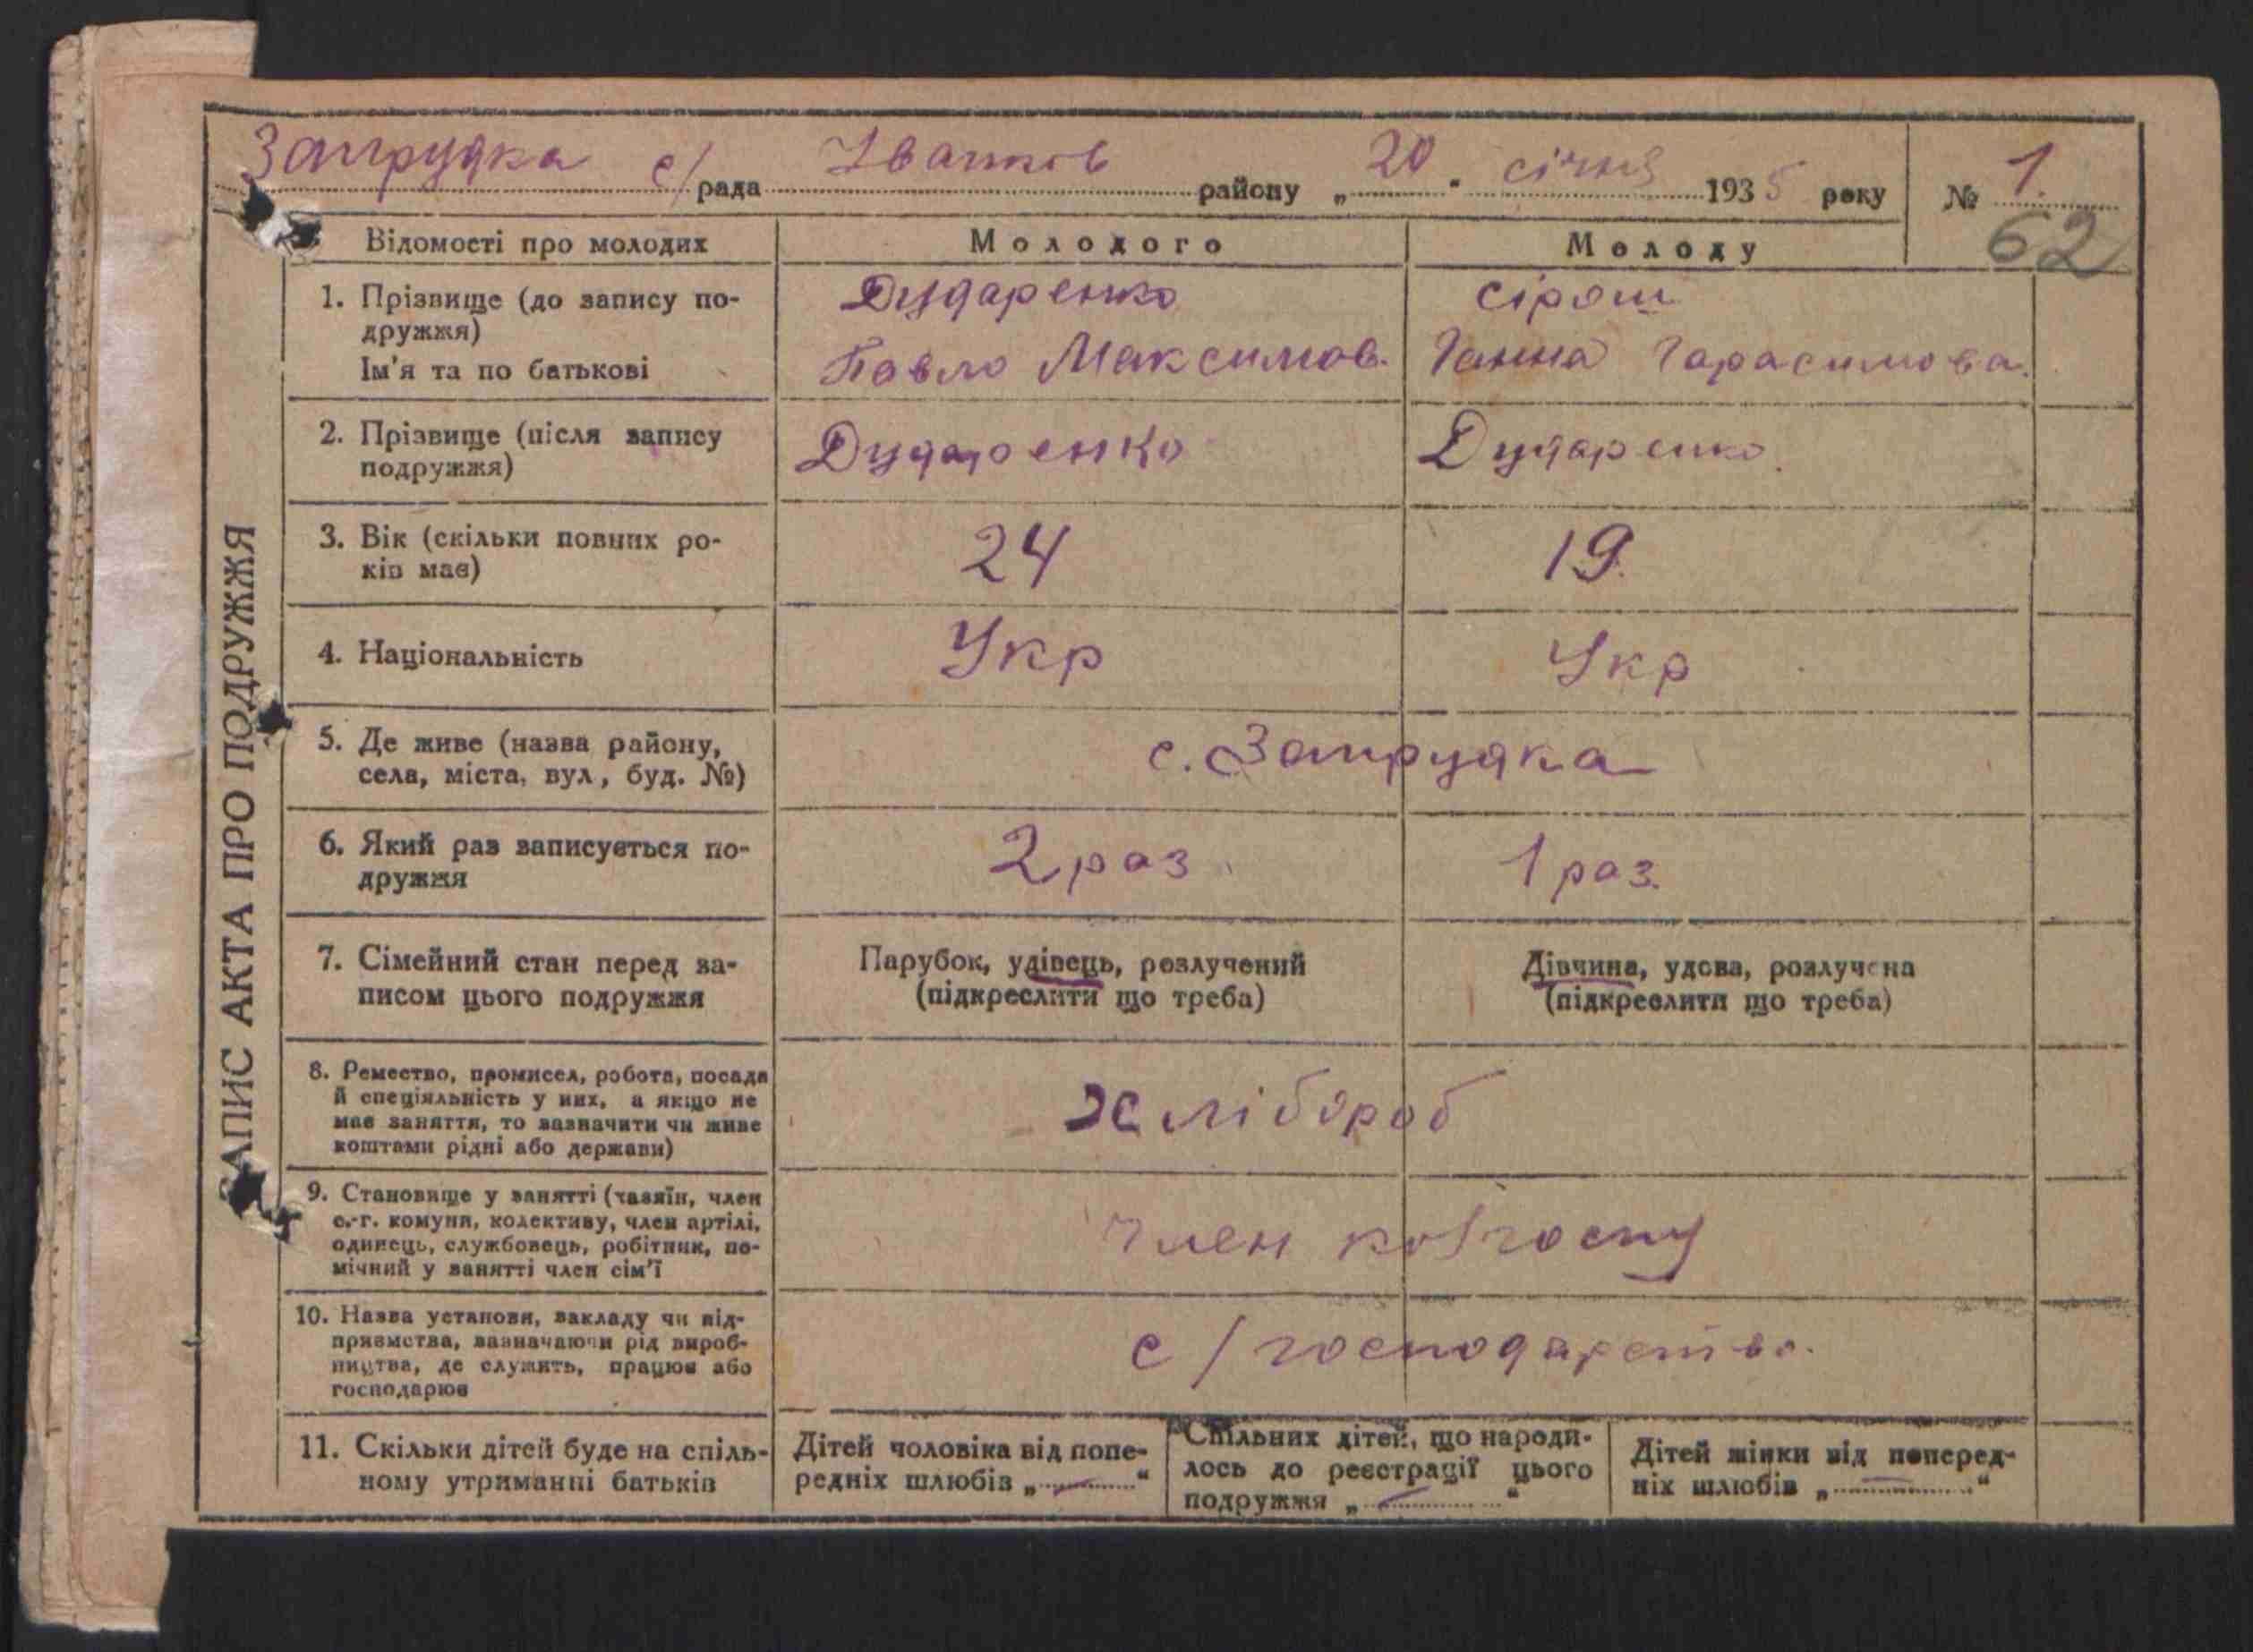 Запрудка с/рада Іванків району „20“ січня 1935 року № 1.
62
ЗАПИС АКТА ПРО ПОДРУЖЖЯ
Відомості про молодих Молодого Молоду
1. Прізвище (до запису по-
дружжя)
Дударенко Сірош
Ім'я та по батькові Павло Максимов. Ганна Гарасимова.
2. Прізвище (після запису
подружжя)
Дударенко Дударенко.
3. Вік (скільки повних ро-
ків має)
24 19.
4. Національність Укр Укр
5. Де живе (назва району,
села, міста, вул, буд. №)
с. Запрудка
6. Який раз записується по-
дружжя
2 раз 1 раз.
7. Сімейний стан перед за-
писом цього подружжя
Парубок, удівець, розлучений
(підкреслити що треба)
Дівчина, удова, розлучена
(підкреслити що треба)
8. Ремество, промисел, робота, посада
й спеціяльність у них, а якщо не
має заняття, то зазначити чи живе
коштами рідні або держави)
хлібороб
9. Становище у занятті (хазяїн, член
с.-г. комуни, колективу, член артілі,
одинець, службовець, робітник, по-
мічний у занятті член сім'ї
член колгоспу
10. Назва установи, закладу чи під-
приємства, зазначаючи рід вироб-
ництва, де служить, працює або
господарює
с/господарство.
11. Скільки дітей буде на спіль-
ному утриманні батьків
Дітей чоловіка від попе-
редніх шлюбів „—“
Спільних дітей, що народи-
лось до реєстрації цього
подружжя „—“
Дітей жінки від поперед-
ніх шлюбів „—“